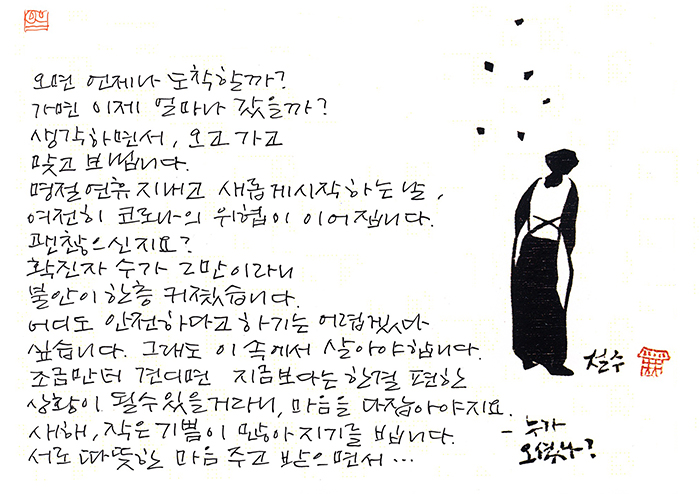 오면 언제나 도착할까?
가면 이제 얼마나 갔을까?
생각하면서, 오고 가고
맞고 보냅니다.
명절연휴 지내고 새롭게 시작하는 날,
여전히 코로나의 위협이 이어집니다.
괜찮으신지요?
확진자 수가 2만이라니
불안이 한층 커졌습니다.
어디도 안전하다고 하기는 어렵겠다
싶습니다. 그래도 이 속에서 살아야 합니다.
조금만 더 견디면 지금보다는 한결 편한
상황이 될 수 있을거라니, 마음을 다잡아야지요.
새해, 작은 기쁨이 많아지기를 빕니다.
서로 따뜻한 마음 주고 받으면서...
철수
- 누가
오셨나?